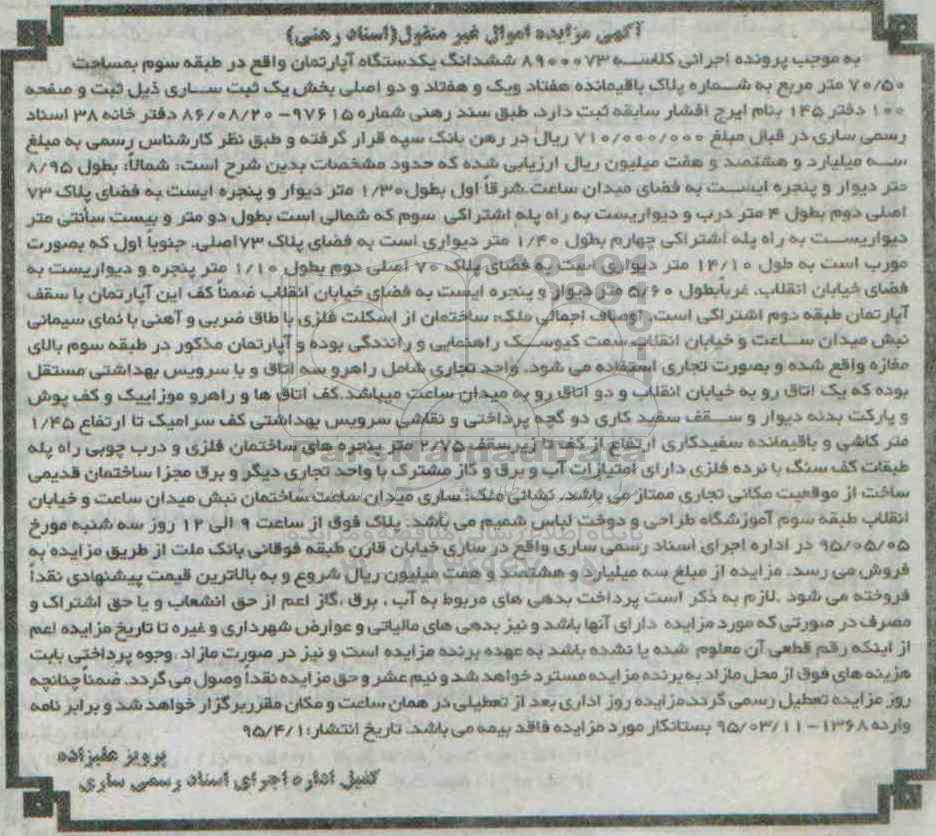 آگهی مزایده اموال غیر منقول(اسناد رهنی)
به موجب پرونده اجرائی کلاسه ۸۹۰۰۰۷۳ ششدانگ یکدستگاه آپارتمان واقع در طبقه سوم بمساحت
۷۰/۵۰ متر مربع به شماره پلاک باقیمانده هفتاد ویک و هفتاد و دو اصلی بخش یک ثبت ساری ذیل ثبت و صفحه
۱۰۰ دفتر ۱۴۵ بنام ایرج افشار سابقه ثبت دارد، طبق سند رهنی شماره ۹۷۶۱۵-۸۶/۰۸/۲۰ دفتر خانه ۳۸ اسناد
رسمی ساری در قبال مبلغ ۷۱۰/۰۰۰/۰۰۰ ریال در رهن بانک سپه قرار گرفته و طبق نظر کارشناس رسمی به مبلغ
سه میلیارد و هشتصد و هفت میلیون ریال ارزیابی شده که حدود مشخصات بدین شرح است: شمالاً: بطول ۸/۹۵
متر دیوار و پنجره ایست به فضای میدان ساعت شرقاً اول بطول ۱/۳۰ متر دیوار و پنجره ایست به فضای پلاک ۷۳
اصلی دوم بطول ۴ متر درب و دیواریست به راه پله اشتراکی سوم که شمالی است بطول دو متر و بیست سانتی متر
دیواریست به راه پله اشتراکی چهارم بطول ۱/۴۰ متر دیواری است به فضای پلاک ۷۳اصلی، جنوباً اول که بصورت
مورب است به طول ۱۴/۱۰ متر دیواری است به فضای پلاک ۷۰ اصلی دوم بطول ۱/۱۰ متر پنجره و دیواریست به
فضای خیابان انقلاب، غرباًبطول ۵/۶۰ متر دیوار و پنجره ایست به فضای خیابان انقلاب ضمناً کف این آپارتمان با سقف
آپارتمان طبقه دوم اشتراکی است. اوصاف اجمالی ملک: ساختمان از اسکلت فلزی با طاق ضربی و آهنی با نمای سیمانی
نبش میدان ساعت و خیابان انقلاب سمت کیوسک راهنمایی و رانندگی بوده و آپارتمان مذکور در طبقه سوم بالای
مغازه واقع شده و بصورت تجاری استفاده می شود. واحد تجاری شامل راهرو سه اتاق و با سرویس بهداشتی مستقل
بوده که یک اتاق رو به خیابان انقلاب و دو اتاق رو به میدان ساعت میباشد.کف اتاق ها و راهرو موزاییک و کف پوش
و پارکت بدنه دیوار و سقف سفید کاری دو گچه پرداختی و نقاشی سرویس بهداشتی کف سرامیک تا ارتفاع ۱/۴۵
متر کاشی و باقیمانده سفیدکاری ارتفاع از کف تا زیر سقف ۲/۷۵ متر پنجره های ساختمان فلزی و درب چوبی راه پله
طبقات کف سنگ با نرده فلزی دارای امتیازات آب و برق و گاز مشترک با واحد تجاری دیگر و برق مجزا ساختمان قدیمی
ساخت از موقعیت مکانی تجاری ممتاز می باشد. نشانی ملک: ساری میدان ساعت ساختمان نبش میدان ساعت و خیابان
انقلاب طبقه سوم آموزشگاه طراحی و دوخت لباس شمیم می باشد. پلاک فوق از ساعت ۹ الی ۱۲ روز سه شنبه مورخ
۹۵/۰۵/۰۵ در اداره اجرای اسناد رسمی ساری واقع در ساری خیابان قارن طبقه فوقانی بانک ملت از طریق مزایده به
فروش می رسد. مزایده از مبلغ سه میلیارد و هشتصد و هفت میلیون ریال شروع و به بالاترین قیمت پیشنهادی نقداً
فروخته می شود .لازم به ذکر است پرداخت بدهی های مربوط به آب ، برق ،گاز اعم از حق انشعاب و یا حق اشتراک و
مصرف در صورتی که مورد مزایده دارای آنها باشد و نیز بدهی های مالیاتی و عوارض شهرداری و غیره تا تاریخ مزایده اعم
از اینکه رقم قطعی آن معلوم شده یا نشده باشد به عهده برنده مزایده است و نیز در صورت مازاد ،وجوه پرداختی بابت
هزینه های فوق از محل مازاد به برنده مزایده مسترد خواهد شد و نیم عشر و حق مزایده نقداً وصول می گردد. ضمناً چنانچه
روز مزایده تعطیل رسمی گردد،مزایده روز اداری بعد از تعطیلی در همان ساعت و مکان مقرر برگزار خواهد شد و برابر نامه
وارده ۱۳۶۸-۹۵/۰۳/۱۱ بستانکار مورد مزایده فاقد بیمه می باشد. تاریخ انتشار: ۹۵/۴/۱
پرویز علیزاده
کفیل اداره اجرای اسناد رسمی ساری